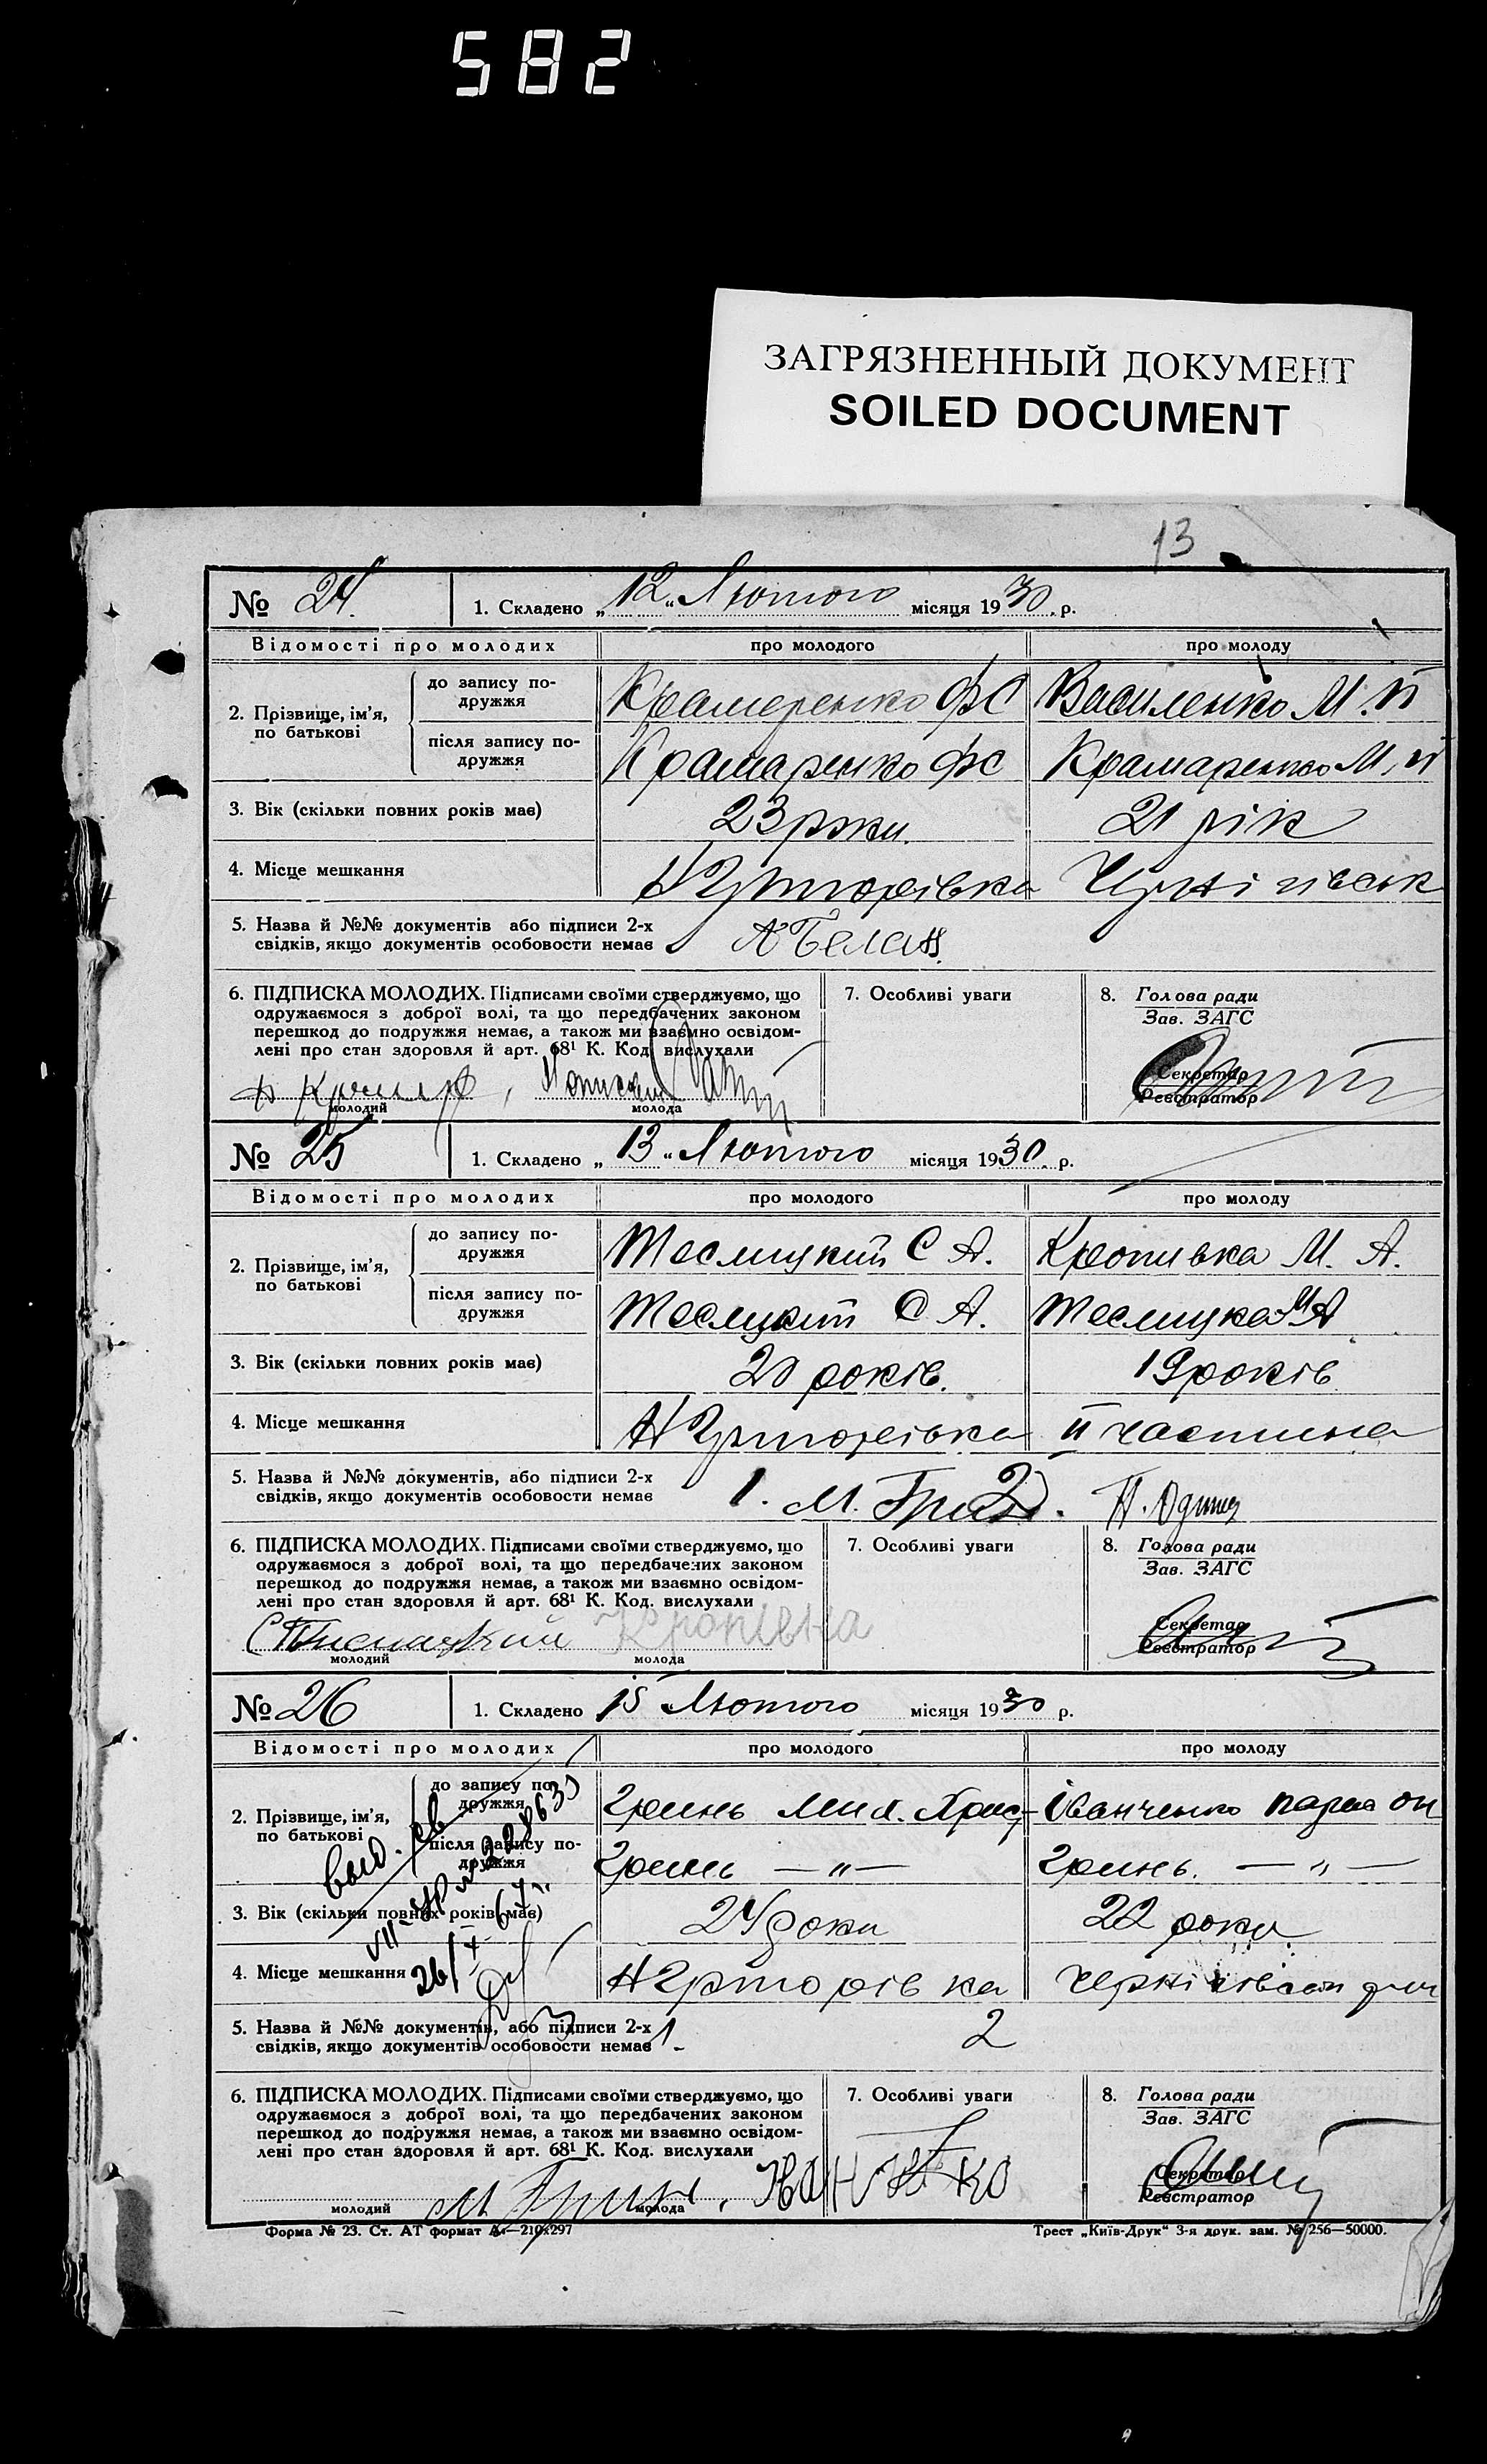 582
ЗАГРЯЗНЕННЫЙ ДОКУМЕНТ
SOILED DOCUMENT
13
№ 24. 1. Складено „12“ Лютого місяця 1930. р.
Відомості про молодих про молодого про молоду
2. Прізвище, ім’я, по батькові
до запису подружжя Крамеренко Ф С Василенко М. П
після запису подружжя Крамаренко Ф С Крамаренко М. П
3. Вік (скільки повних років має) 23 роки. 21 рік
4. Місце мешкання
5. Назва й №№ документів або підписи 2-х
свідків, якщо документів особовости немає А Белан
6. ПІДПИСКА МОЛОДИХ. Підписами своїми стверджуємо, що
одружаємося з доброї волі, та що передбачених законом
перешкод до подружжя немає, а також ми взаємно освідом-
лені про стан здоровля й арт. 68¹ К. Код. вислухали
7. Особливі уваги
8. Голова ради
Зав. ЗАГС
Секретар
Реєстратор
молодий молода
№ 25 1. Складено „13“ Лютого місяця 1930. р.
Відомості про молодих про молодого про молоду
2. Прізвище, ім’я, по батькові
до запису подружжя Тесмицкий С А. Кропивка М. А.
після запису подружжя С А. Тесмицка М А
3. Вік (скільки повних років має) 20 років. 19 років
4. Місце мешкання ІІ частина
5. Назва й №№ документів, або підписи 2-х
свідків, якщо документів особовости немає 1. М. 2. П.
6. ПІДПИСКА МОЛОДИХ. Підписами своїми стверджуємо, що
одружаємося з доброї волі, та що передбачених законом
перешкод до подружжя немає, а також ми взаємно освідом-
лені про стан здоровля й арт. 68¹ К. Код. вислухали
7. Особливі уваги
8. Голова ради
Зав. ЗАГС
Секретар
Реєстратор
молодий молода
№ 26 1. Складено 15 “ Лютого місяця 1930 р.
Відомості про молодих про молодого про молоду
2. Прізвище, ім’я, по батькові
до запису подружжя Гринь Мих. Іванченко
після запису подружжя Гринь — „ — Гринь. — „ —
3. Вік (скільки повних років має) 24 роки 22 роки
4. Місце мешкання
5. Назва й №№ документів, або підписи 2-х
свідків, якщо документів особовости немає 1. 2
6. ПІДПИСКА МОЛОДИХ. Підписами своїми стверджуємо, що
одружаємося з доброї волі, та що передбачених законом
перешкод до подружжя немає, а також ми взаємно освідом-
лені про стан здоровля й арт. 68¹ К. Код. вислухали
7. Особливі уваги
8. Голова ради
Зав. ЗАГС
Секретар
Реєстратор
М Гринь
молодий молода
Форма № 23. Ст. АТ формат А₄—210×297 Трест „Київ-Друк“ 3-я друк. зам. № 256—50000.